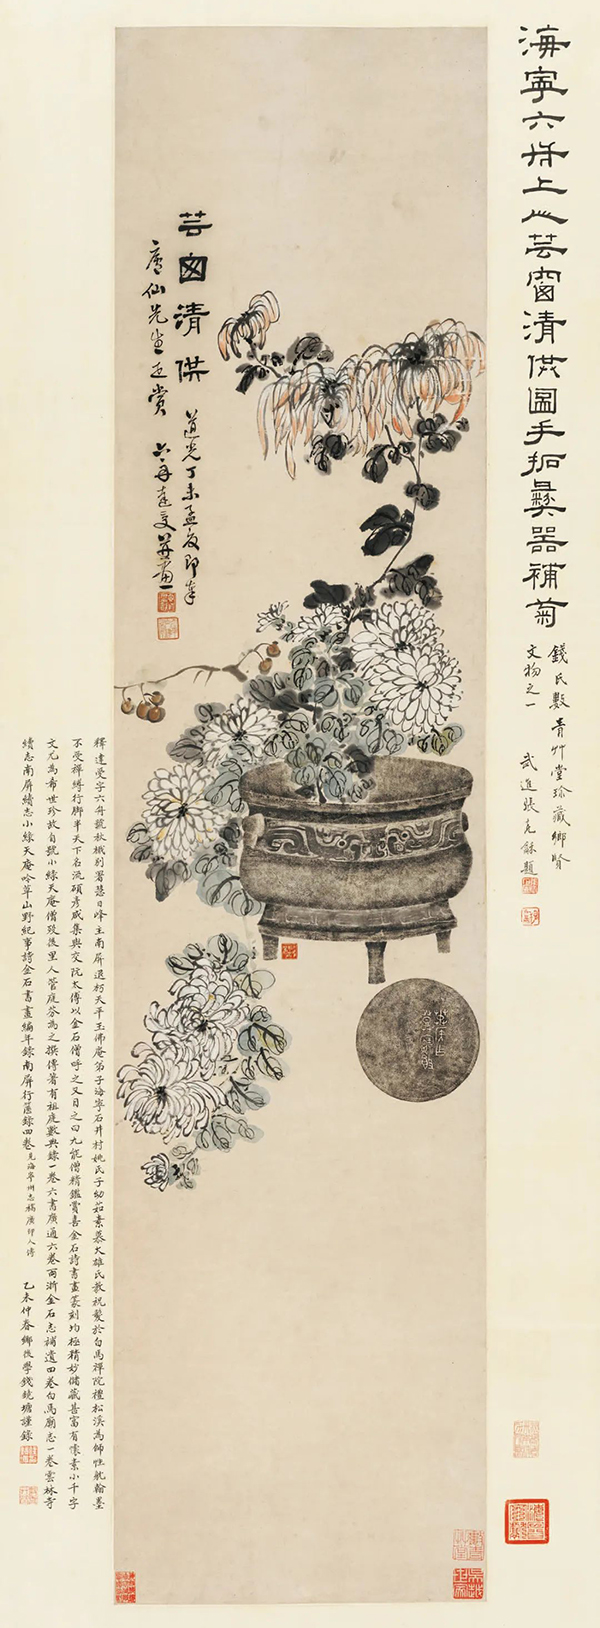 海寧六舟上人芸窗清供圖手拓彝器補菊
錢氏數青艸堂珍藏鄉賢
文物之一 武進張克龢題
芸囪清供
道光丁未孟夏即
仙先生正賞 六舟達受并畫
釋達受字六舟號秋檝別署慧日峰主南屏退朽天平玉佛庵弟子海寧石井村姚氏子幼茹素慕大雄氏教祝髮於白馬禪院禮松溪為師性躭翰墨
不受禪縛行腳半天下名流碩彥咸集與交阮太傅以金石僧呼之又目之曰九能僧精鑑賞喜金石詩書畫篆刻均極精妙儲藏甚富有懷素小千字
文尤為希世珍故自號小綠天庵僧歿後里人管庭芬為之撰傳著有祖庭數典錄一卷六書廣通六卷兩浙金石志補遺四卷白馬廟志一卷雲林寺
續志南屏續志小綠天庵吟草山野紀事詩金石書畫編年錄南屏行篋錄四卷見海寧州志稿廣印人傳 乙未仲春鄉後學錢鏡塘謹錄